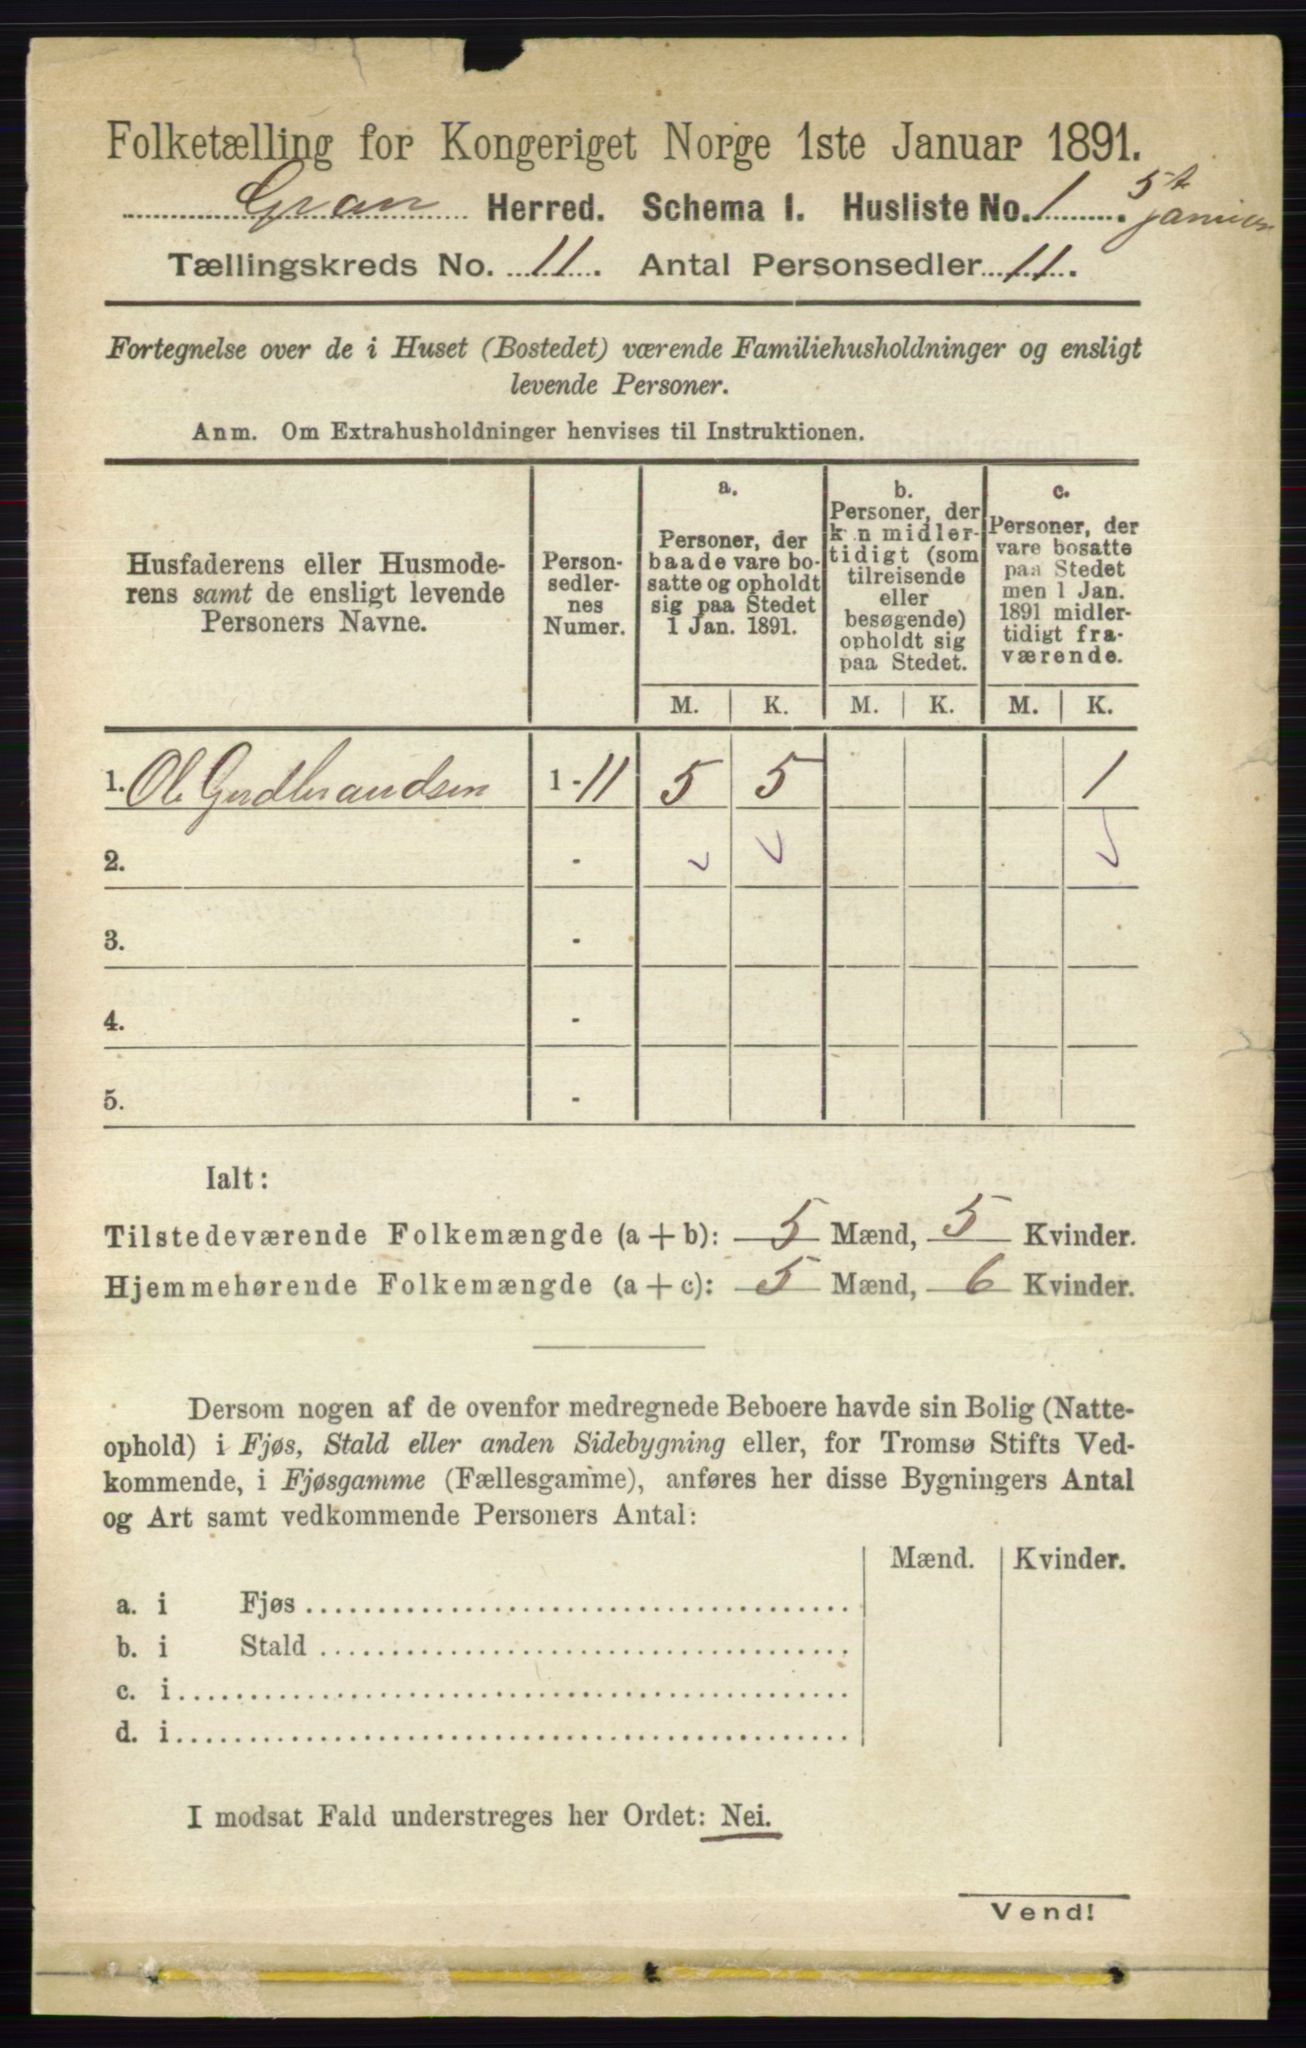 Folketælling for Kongeriget Norge 1ste Januar 1891.
Gran Herred. Schema I. Husliste No. 1. 5t
Januar
Tællingskreds No. 11. Antal Personsedler 11.
Fortegnelse over de i Huset (Bostedet) værende Familiehusholdninger og ensligt
levende Personer.
Anm. Om Extrahusholdninger henvises til Instruktionen.
Husfaderens eller Husmode-
rens samt de ensligt levende
Personers Navne.
Person-
sedler-
nes
Numer.
a.
Personer, der
baade vare bo-
satte og opholdt
sig paa Stedet
1 Jan. 1891.
b.
Personer, der
kun midler-
tidigt (som
tilreisende
eller
besøgende)
opholdt sig
paa Stedet.
c.
Personer, der
vare bosatte
paa Stedet
men 1 Jan.
1891 midler-
tidigt fra-
værende.
M. K. M. K. M. K.
1. Ole Gudbrandsen 1 - 11 5 5 1
2. -
3. -
4. -
5. -
Ialt:
Tilstedeværende Folkemængde (a + b): 5 Mænd, 5 Kvinder.
Hjemmehørende Folkemængde (a + c): 5 Mænd, 6 Kvinder.
Dersom nogen af de ovenfor medregnede Beboere havde sin Bolig (Natte-
ophold) i Fjøs, Stald eller anden Sidebygning eller, for Tromsø Stifts Ved-
kommende, i Fjøsgamme (Fællesgamme), anføres her disse Bygningers Antal
og Art samt vedkommende Personers Antal:
Mænd. Kvinder.
a. i Fjøs
b. i Stald
c. i
d. i
I modsat Fald understreges her Ordet: Nei.
Vend!